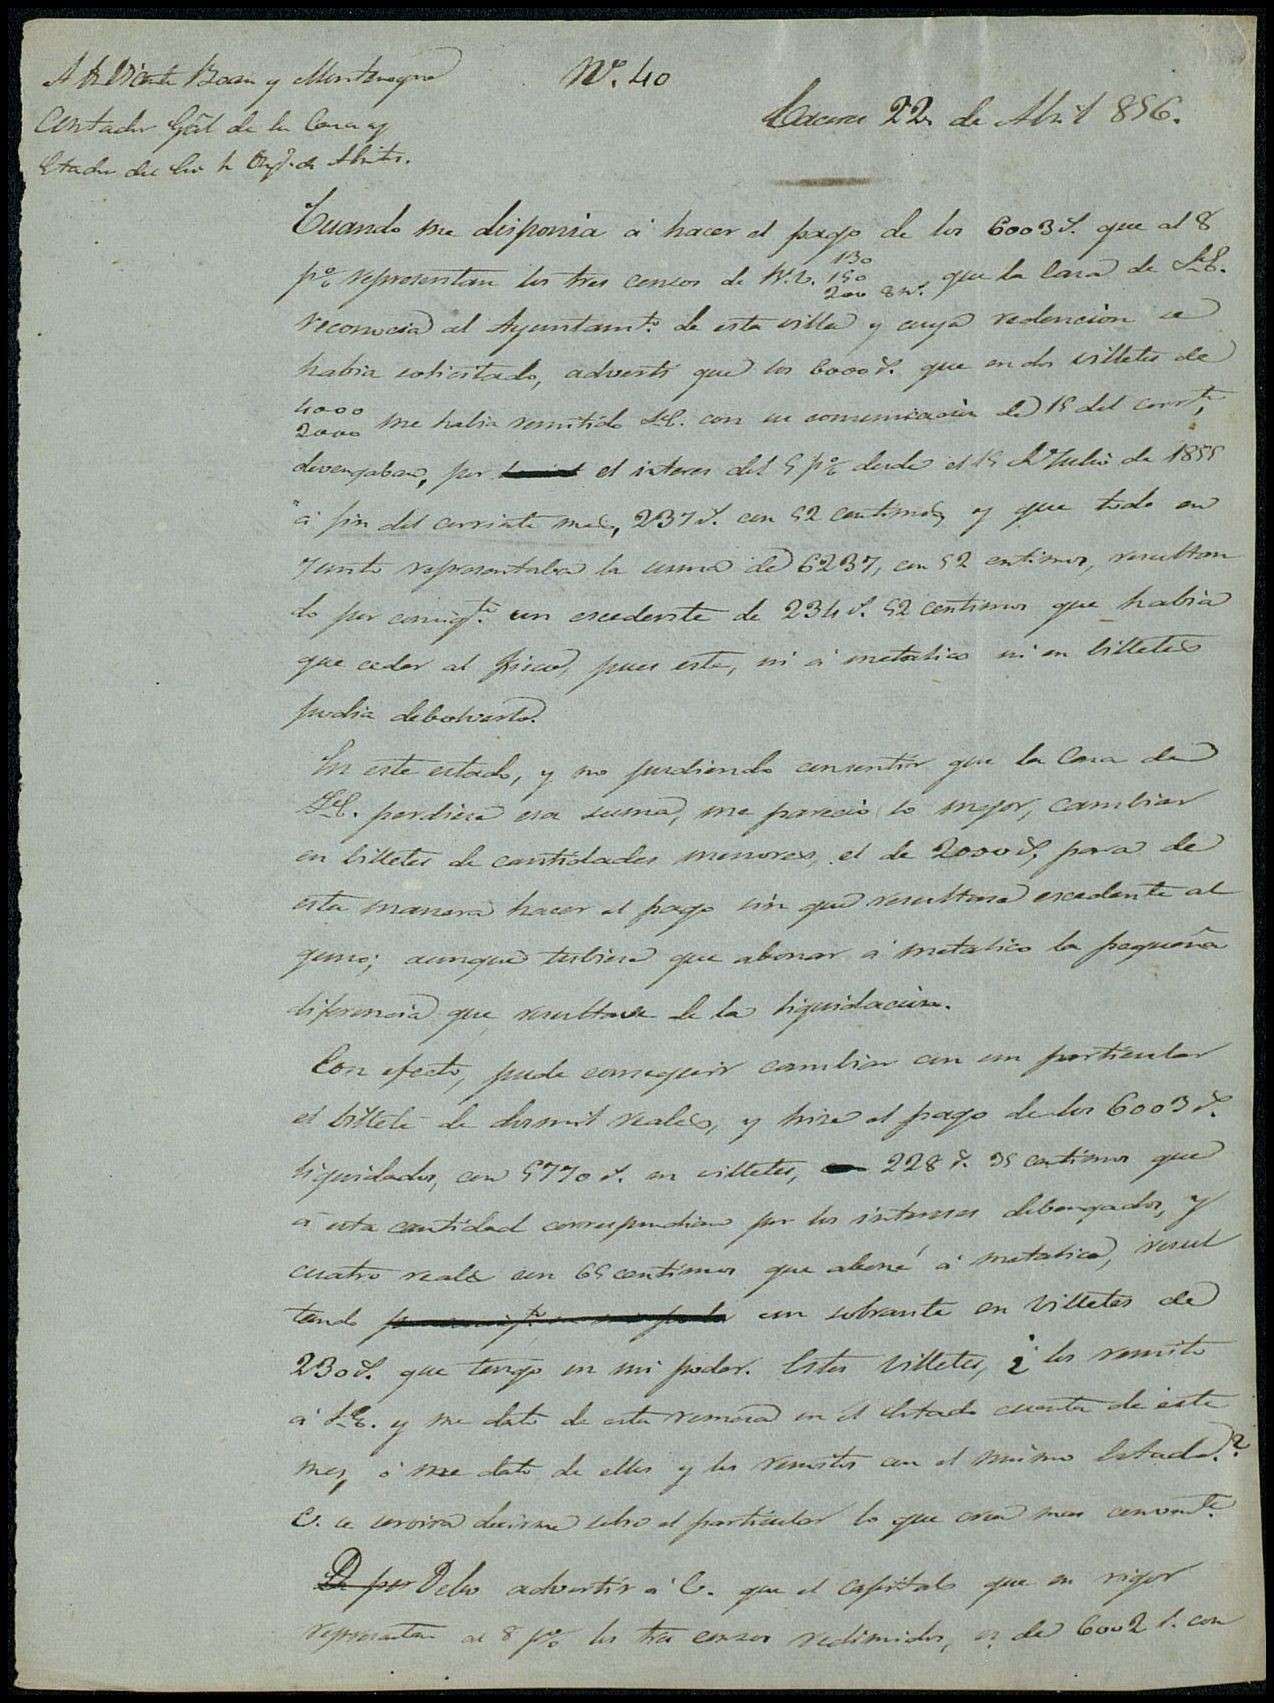 A Dn Vicente Boan y Montenegro
Contador Gral de la Casa y
Estados del
Nº. 40
Caceres 22 de Abril 856.
Cuando me disponia á hacer el pago de los 6003 r. que al 8
p% representan los tres censos de rs. vn. 130 150 200 8 ms. que la Casa de S.E.
reconocia al Ayuntamto. de esta villa y cuya redencion se
habia solicitado, adverti que los 6000 r. que en dos villetes de
4000 2000 me habia remitido S.E. con su comunicacion de 15 del corrte,
devengaban, por el interes del 5 p% desde el 15 de Julio de 1855
á fin del corriente mes, 237 r. con 52 centimos, y que todo en
junto representaba la suma de 6237, con 52 centimos, resultan
do por consigte. un escedente de 234 r. 52 centimos que habia
que ceder al fisco, pues este, ni á metalico ni en billetes
podia debolverlo.
En este estado, y no pudiendo consentir que la Casa de
S.E. perdiese esa suma, me parecio lo mejor, cambiar
en billetes de cantidades menores, el de 2000 r, para de
esta manera hacer el pago sin que resultase escedente al
guno; aunque tubiese que abonar á metalico la pequeña
diferencia que resultase de la liquidacion.
Con efecto, pude conseguir cambiar con un particular
el billete de dos mil reales, y hice el pago de los 6003 r.
liquidados, con 5770 r. en villetes, 228 r. 35 centimos que
á esta cantidad correspondian por los intereses debengados, y
cuatro reales con 65 centimos que aboné á metalico, resul
tando un sobrante en villetes de
230 r. que tengo en mi poder. Estos villetes, ¿ los remito
á S.E. y me dato de esta remesa en el Estado cuenta de este
mes, ó me dato de ellos y los remito con el mismo Estado?
V. se servira decirme sobre el particular lo que crea mas convente.
Debo advertir á V. que el capital que en rigor
representan al 8 p% los tres censos redimidos, es de 6002 r. con